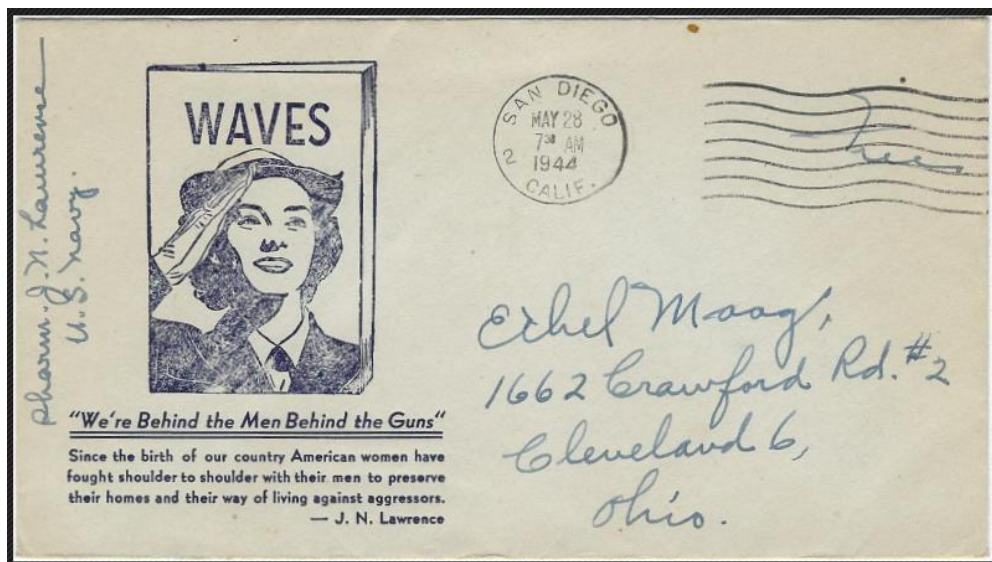 Pharm. J. N. Lawrence
U. S. Navy.
WAVES
"We're Behind the Men Behind the Guns"
Since the birth of our country American women have
fought shoulder to shoulder with their men to preserve
their homes and their way of living against aggressors.
— J. N. Lawrence
SAN DIEGO
MAY 28
7 30 AM
1944
2
CALIF.
Free
Ethel Maag,
1662 Crawford Rd. #2
Cleveland 6,
Ohio.